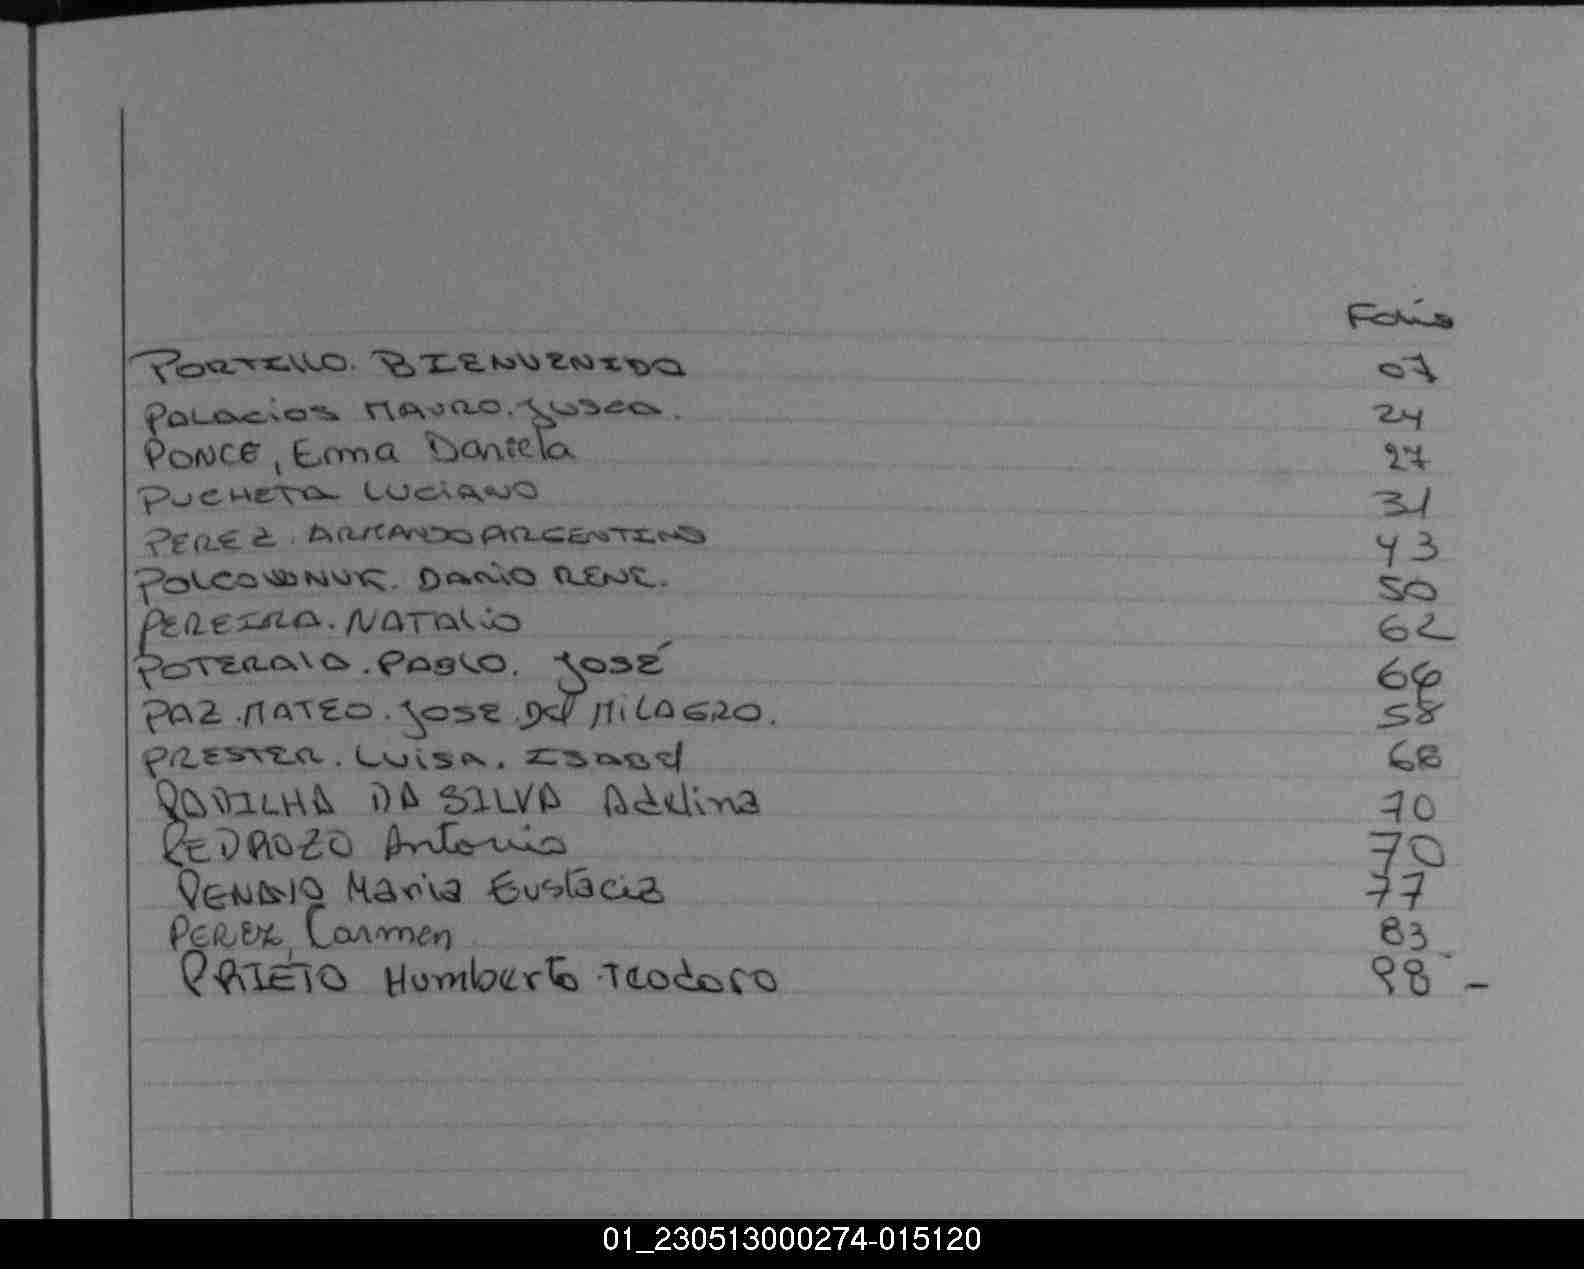 Folio
PORTILLO. BIENVENIDO 07
PALACIOS MAURO. 24
PONCE, Erma Daniela 27
PUCHETA LUCIANO 31
PEREZ. ARMANDO ARGENTINO 43
DARIO RENE. 50
PEREIRA. NATALIO 62
PABLO. JOSÉ 66
PAZ. MATEO. JOSE. Del MILAGRO. 58
PRESTER. LUISA. ISABEL 68
PADILHA DA SILVA Adelina 70
PEDROZO Antonio 70
Maria Eustacia 77
PEREZ, Carmen 83
PRIETO Humberto Teodoro 98 -
01_230513000274-015120